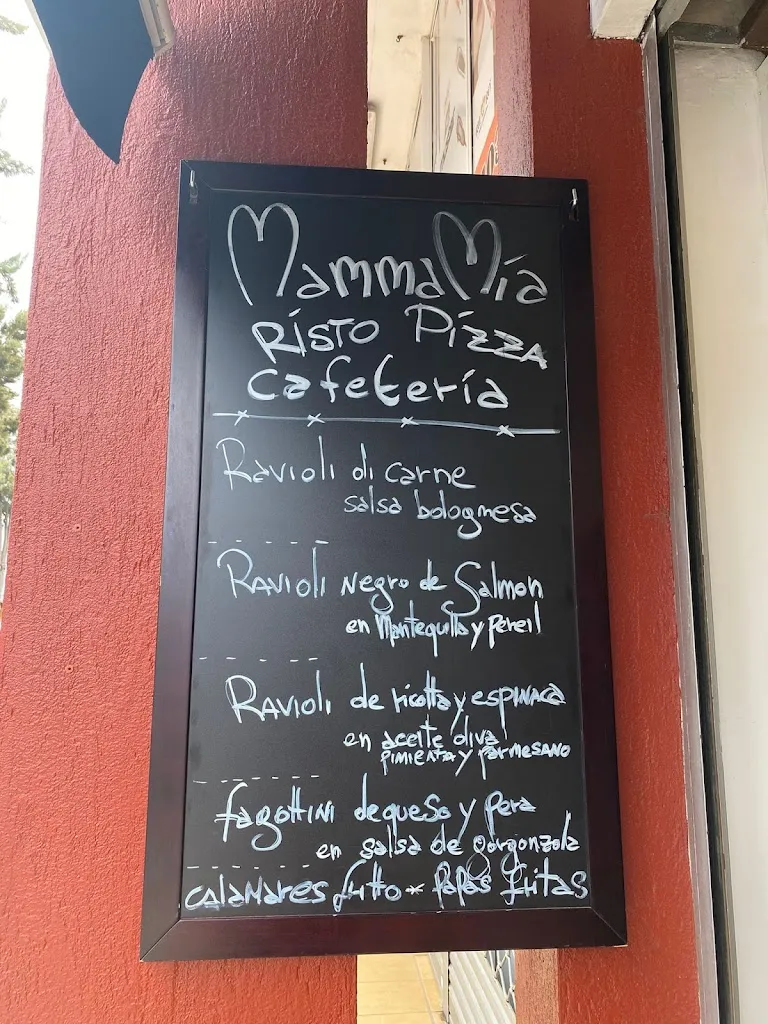 MammaMía
RÍSTO PÍZZA
cafetería
Ravioli di carne
salsa bolognesa
RAVIOLI Negro de Salmon
en Mantequilla y Pereil
RAVIOLI de ricotta y espinaca
en aceite diva
pimienta y parmesano
fagottini de queso y pera
en salsa de gorgonzola
CALAMARES fritto * PAPAS fritas